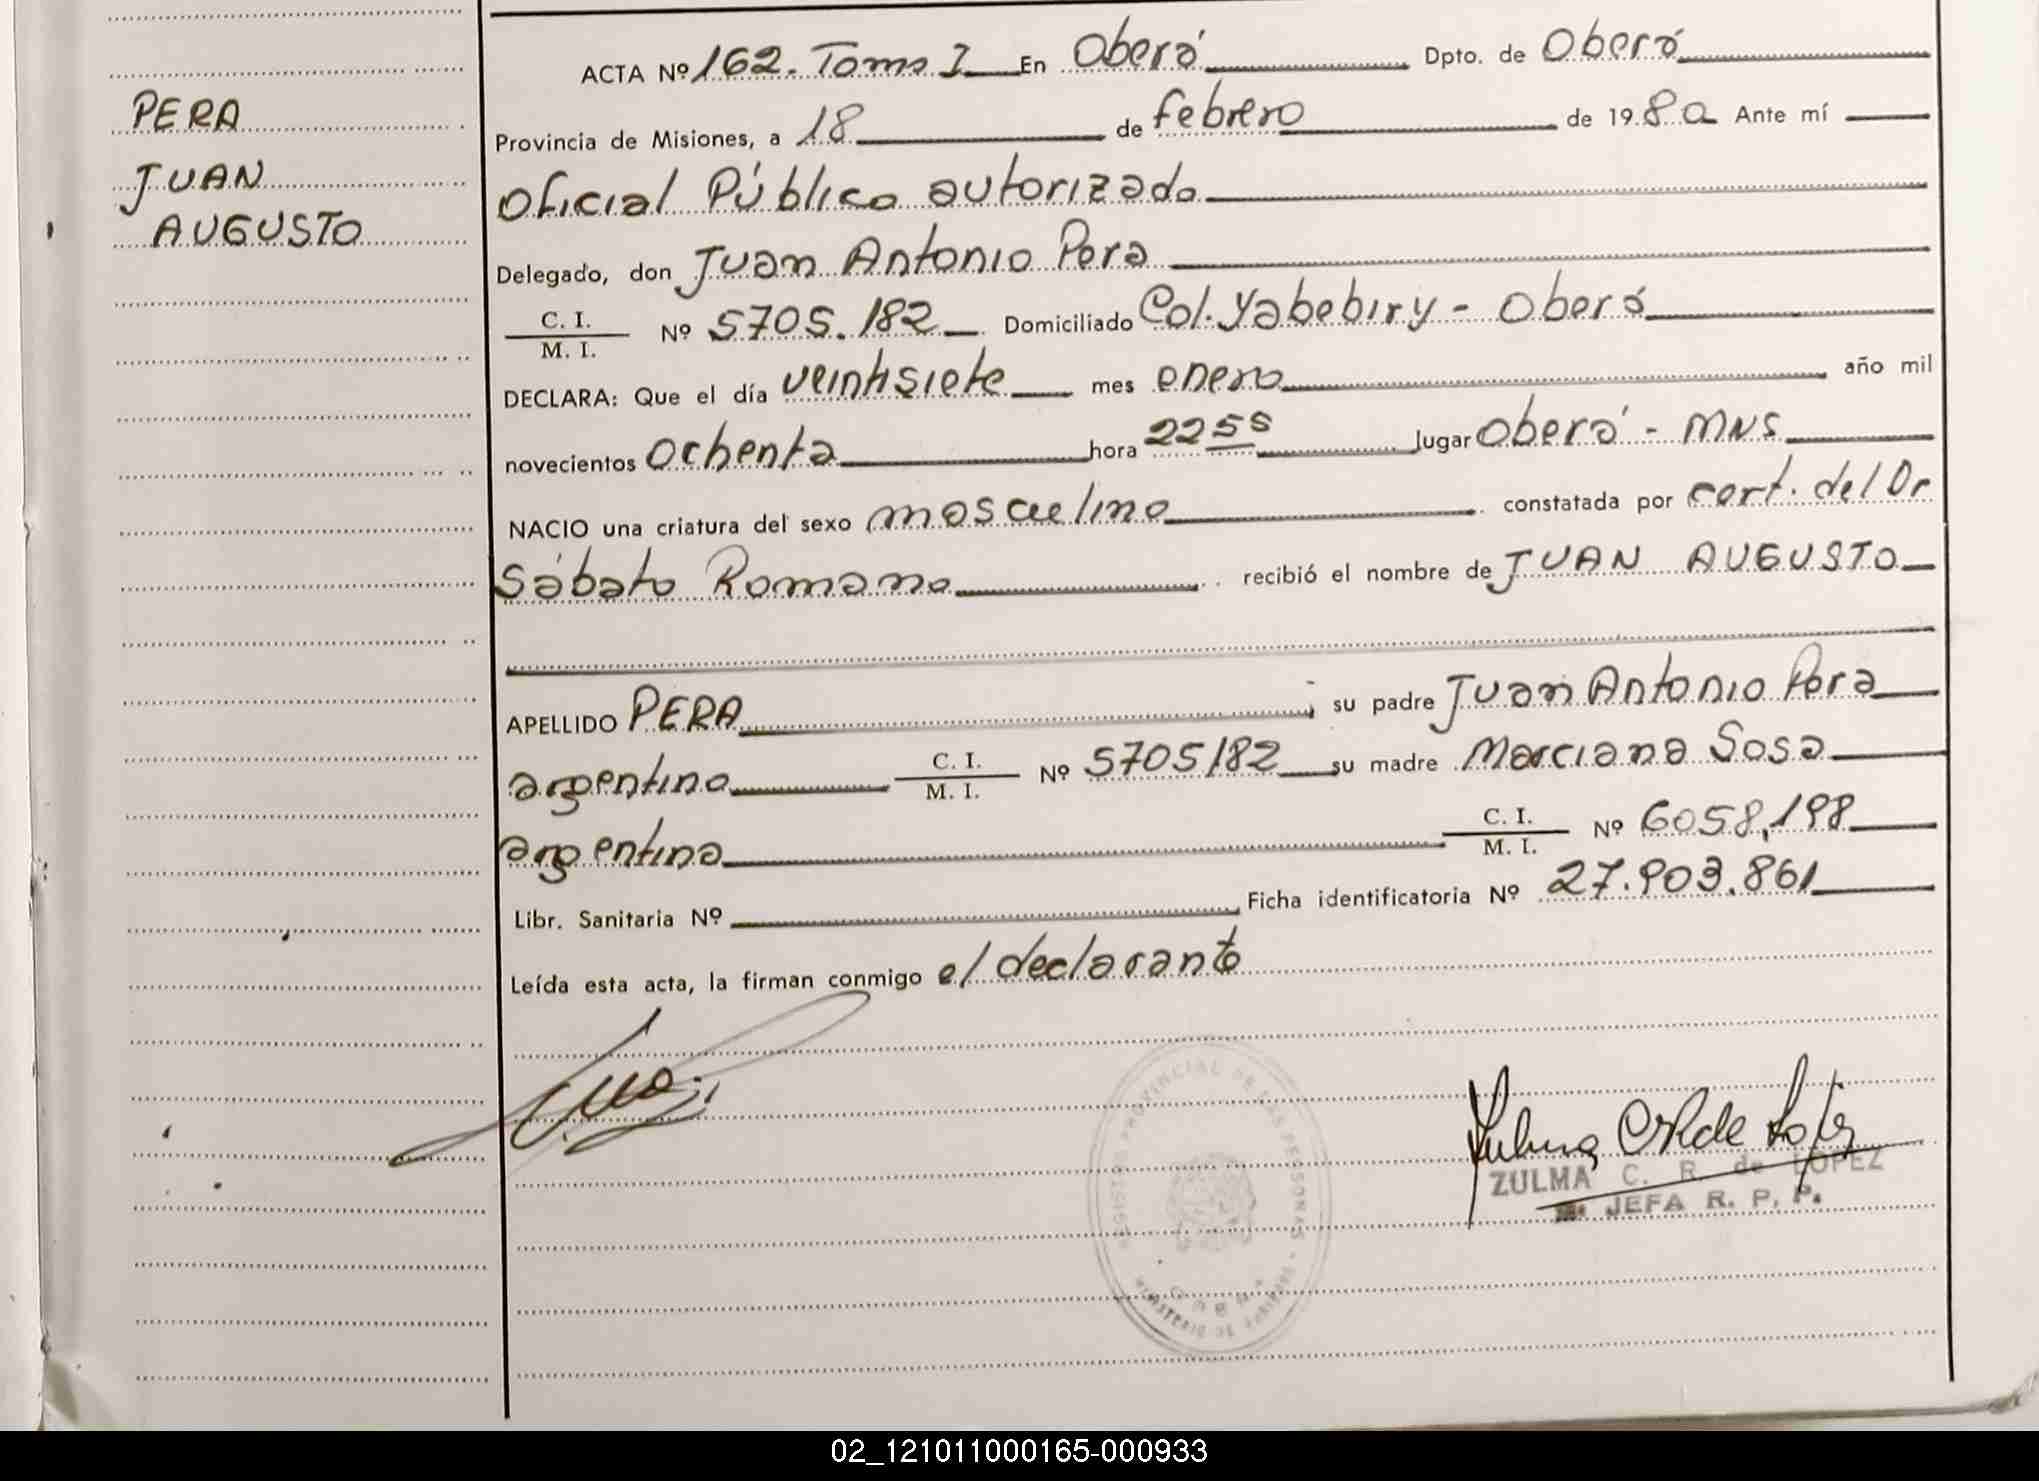 PERA
JUAN
AUGUSTO
ACTA Nº 162. Tomo I En Oberá Dpto. de Oberá
Provincia de Misiones, a 18 de febrero de 1980 Ante mí
Oficial Público autorizado
Delegado, don Juan Antonio Pera
C. I.
M. I. Nº 5705.182 Domiciliado Col. Yabebiry - Oberá
DECLARA: Que el día veintisiete mes enero año mil
novecientos ochenta hora 2255 lugar Oberá - MNS
NACIO una criatura del sexo masculino constatada por cert. del Dr
Sábato Romano recibió el nombre de JUAN AUGUSTO
APELLIDO PERA su padre Juan Antonio Pera
argentino C. I.
M. I. Nº 5705182 su madre Marciana Sosa
argentina C. I.
M. I. Nº 6058,198
Libr. Sanitaria Nº Ficha identificatoria Nº 27.903.861
Leída esta acta, la firman conmigo el declarante
REGISTRO PROVINCIAL DE LAS PERSONAS
OBERA
ZULMA C. R. de LOPEZ
JEFA R. P. P.
02_121011000165-000933